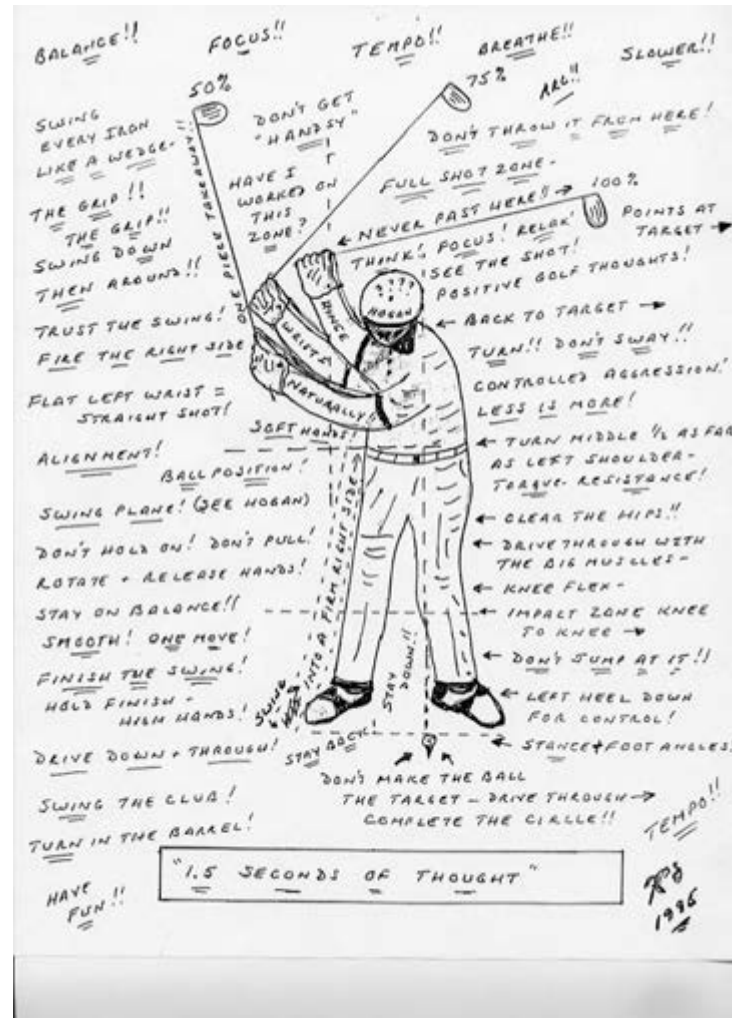 BALANCE!!
FOCUS!!
TEMPO!!
BREATHE!!
SLOWER!!
50%
75%
ARC!!
SWING
EVERY IRON
LIKE A WEDGE-
DON'T GET
"HANDSY"
DON'T THROW IT FROM HERE!
FULL SHOT ZONE-
HAVE I
WORKED ON
THIS
ZONE?
100%
THE GRIP!!
THE GRIP!!
SWING DOWN
THEN AROUND!!
ONE PIECE TAKEAWAY!!
NEVER PAST HERE!!
POINTS AT
TARGET
THINK! FOCUS! RELAX!
SEE THE SHOT!
POSITIVE GOLF THOUGHTS!
????
HOGAN
HINGE
WRISTS
NATURALLY!!
TRUST THE SWING!
FIRE THE RIGHT SIDE
BACK TO TARGET
TURN!! DON'T SWAY!!
FLAT LEFT WRIST =
STRAIGHT SHOT!
CONTROLLED AGGRESSION!
LESS IS MORE!
SOFT HANDS!
ALIGNMENT!
BALL POSITION!
TURN MIDDLE 1/2 AS FAR
AS LEFT SHOULDER-
TORQUE- RESISTANCE!
SWING PLANE! (SEE HOGAN)
CLEAR THE HIPS!!
DON'T HOLD ON! DON'T PULL!
ROTATE + RELEASE HANDS!
DRIVE THROUGH WITH
THE BIG MUSCLES-
KNEE FLEX-
STAY ON BALANCE!!
SMOOTH! ONE MOVE!
IMPACT ZONE KNEE
TO KNEE
FINISH THE SWING!
HOLD FINISH -
HIGH HANDS!
INTO A FIRM RIGHT SIDE
STAY
DOWN!!
DON'T JUMP AT IT!!
SWING
LEFT HEEL DOWN
FOR CONTROL!
DRIVE DOWN + THROUGH!
STAY BACK
STANCE + FOOT ANGLES!
DON'T MAKE THE BALL
THE TARGET - DRIVE THROUGH
COMPLETE THE CIRCLE!!
SWING THE CLUB!
TURN IN THE BARREL!
TEMPO!!
"1.5 SECONDS OF THOUGHT"
HAVE
FUN!!